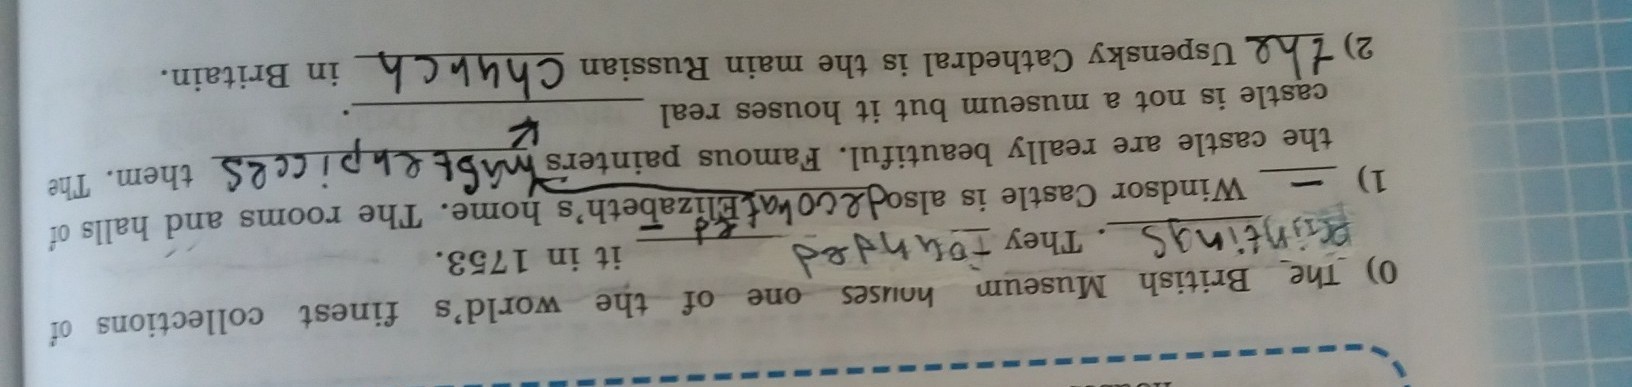 0) The British Museum houses one of the world's finest collections of
paintings. They founded it in 1753.
1) – Windsor Castle is also Elizabeth's home. The rooms and halls of
decorated
the castle are really beautiful. Famous painters masterpieces them. The
castle is not a museum but it houses real .
2) the Uspensky Cathedral is the main Russian church in Britain.